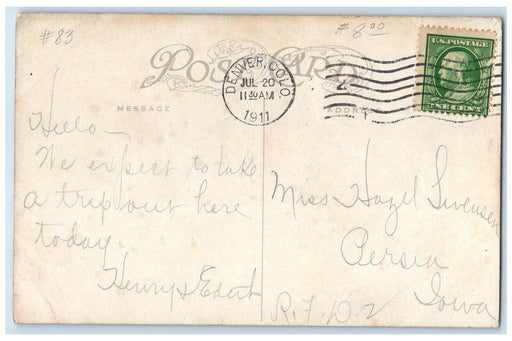 #83
#8.00
POST CARD
DENVER, COLO.
JUL 20
11 30 AM
1911
2
U.S. POSTAGE
MESSAGE
ADDRESS
Hello –
We expect to take
a trip out here
today.
Henry &
Miss Hazel Swensen
Persia
Iowa
R.F.D. 2